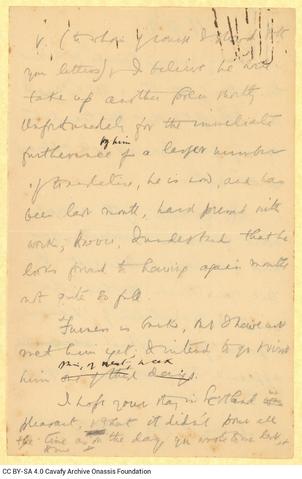 (to whom of course I showed both
your letters) & I believe he will
take up another poem shortly.
Unfortunately for the immediate
by him
furtherance of a larger number
of translations, he is now, and has
been last month, hard pressed with
work; however, I understand that he
looks forward to having again months
not quite so full.
Furness is back, but I have not
met him yet; I intend to go & visit
this, or next, week
him
I hope your stay in Scotland was
pleasant, & that it didn't pour all
the time as on the day you wrote me last
CC BY-SA 4.0 Cavafy Archive Onassis Foundation